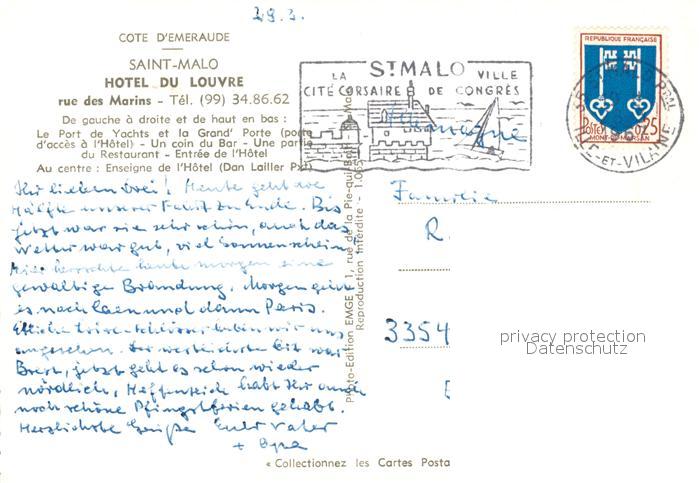 29.3.
COTE D'EMERAUDE
SAINT-MALO
HOTEL DU LOUVRE
rue des Marins - Tél. (99) 34.86.62
De gauche à droite et de haut en bas :
Le Port de Yachts et la Grand' Porte (porte
d'accès à l'Hôtel) - Un coin du Bar - Une partie
du Restaurant - Entrée de l'Hôtel
Au centre : Enseigne de l'Hôtel (Dan Lailler Pxt)
LA ST MALO VILLE
CITÉ CORSAIRE DE CONGRÈS
REPUBLIQUE FRANÇAISE
POSTES 0,25
MONT-DE-MARSAN
ILLE-ET-VILAINE
Allemagne
Ihr lieben drei! Heute geht die
Hälfte unserer Fahrt zu Ende. Bis
jetzt war sie sehr schön, auch das
Wetter war gut, viel Sonnenschein,
hier herrschte heute morgen eine
gewaltige Brandung. Morgen geht
es nach Caen und dann Paris.
Etliche Loire-Schlösser haben wir uns
angesehen. Der westlichste Ort war
Brest, jetzt geht es schon wieder
nördlich, Hoffentlich habt Ihr auch
noch schöne Pfingstferien gehabt.
Herzlichste Grüße Euer Vater
+ Opa
Photo-Edition EMGE - 1, rue de la Pie-qui-Boit
Reproduction Interdite
Familie
R.
3354
privacy protection
Datenschutz
« Collectionnez les Cartes Posta